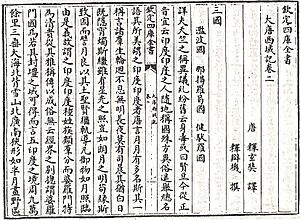 欽定四庫全書
大唐西域記卷二
唐 釋玄奘 譯
釋辯機 撰
三國
濫波國 那揭羅曷國 健馱羅國
詳夫天竺之稱異議糾紛舊云身毒或曰賢豆今從正
音宜云印度印度之人隨地稱國殊方異俗遙舉總名
語其所美謂之印度印度者唐言月月有多名斯其一
欽定四庫全書
稱言諸羣生輪迴不息無明長夜莫有司晨其猶白日
既隱宵燭斯繼雖有星光之照豈如朗月之明茍緣斯
致因而譬月良以其土聖賢繼軌導凡御物如月照臨
由是義故謂之印度印度種姓族類羣分而婆羅門特
為清貴從其雅稱傳以成俗無云經界之別總謂婆羅
門國焉若其封疆之域可得而言五印度之境周九萬
餘里三垂大海北背雪山北廣南狹形如半月畫野區